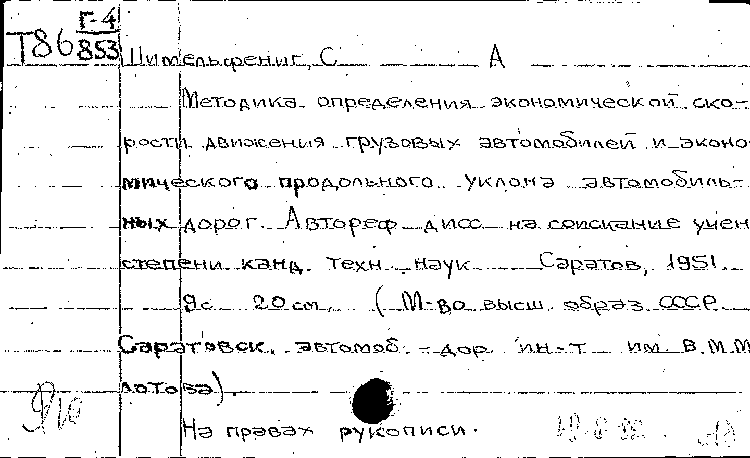 Г-4
Т86 853
Цимельфениг, С А
Методика определения экономической ско-
рости движения грузовых автомобилей и эконо
мического продольного уклона автомобиль-
ных дорог. Автореф дисс на соискание учен
степени канд. техн наук Саратов, 1951.
9с 20 см. (М-во высш. образ СССР
Саратовск. автомоб.-дор ин-т им В.М.М
лотова).
На правах рукописи.